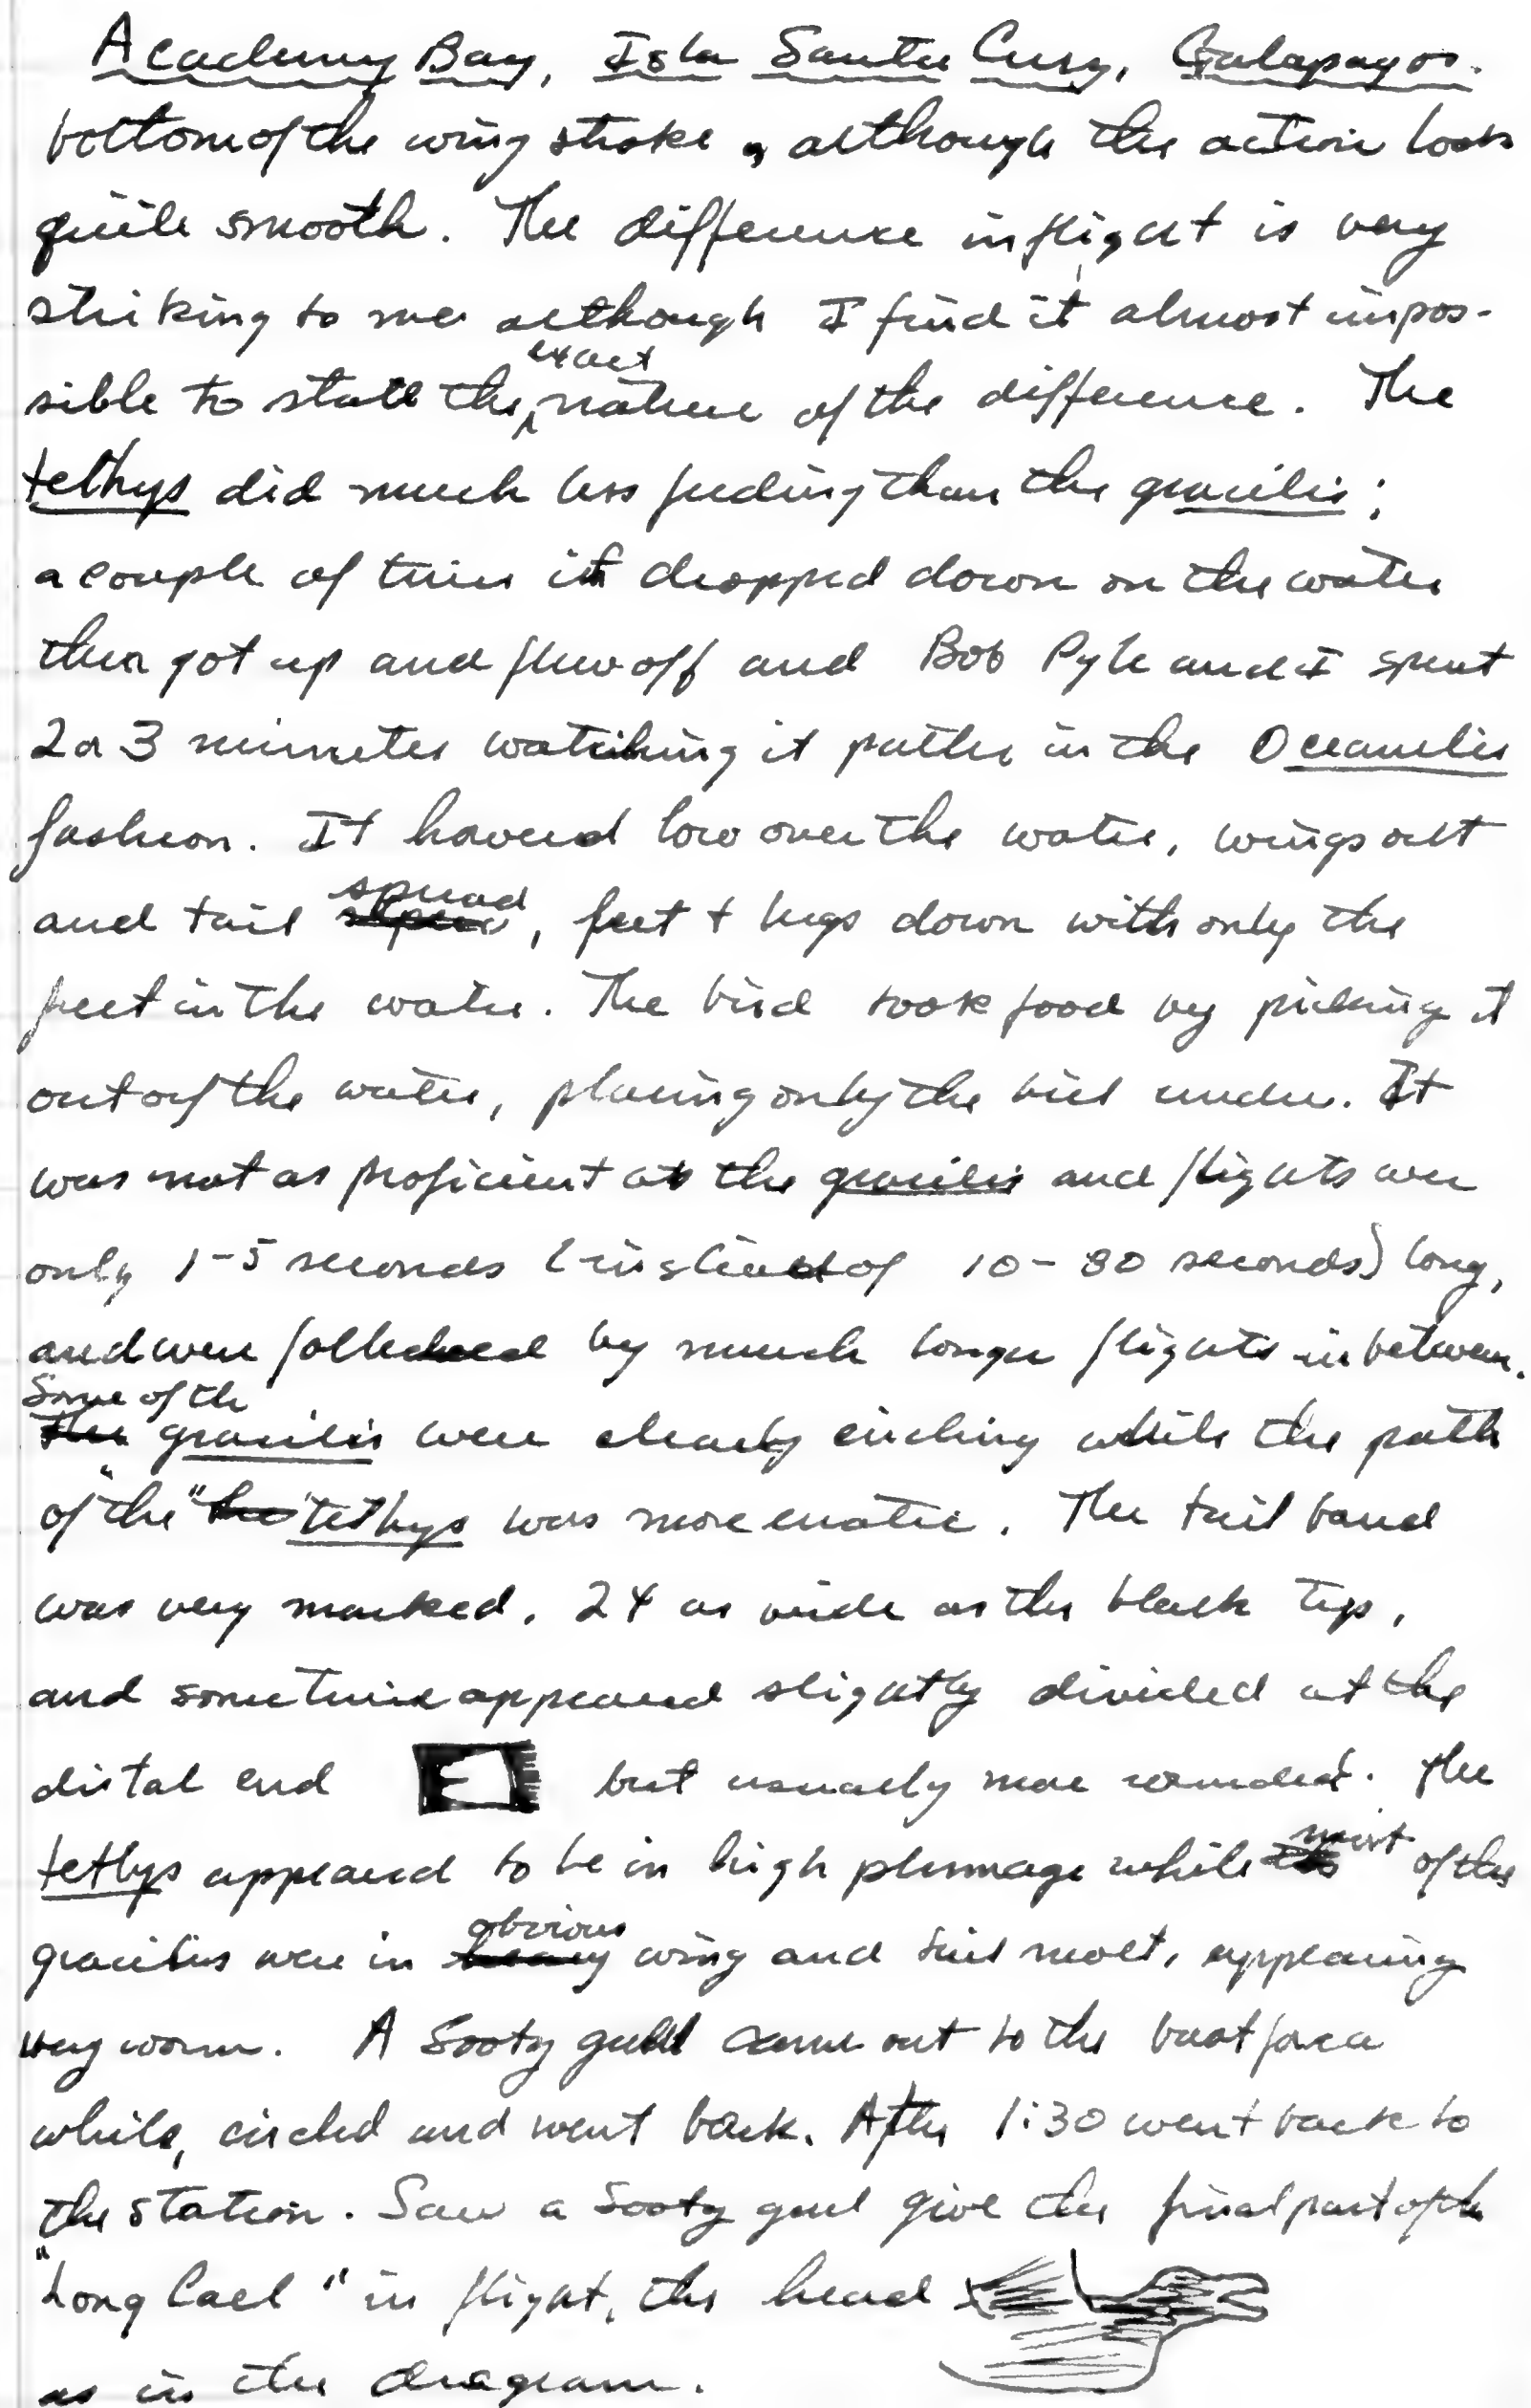 Academy Bay, Isla Santa Cruz, Galapagos.
bottom of the wing stroke, although the action looks
quite smooth. The difference in flight is very
striking to me although I find it almost impos-
sible to state the exact nature of the difference. The
tethys did much less feeding than the gracilis;
a couple of times it dropped down on the water
then got up and flew off and Bob Pyle and I spent
2 or 3 minutes watching it patter in the Oceanites
fashion. It hovered low over the water, wings out
and tail spread, feet + legs down with only the
feet in the water. The bird took food by picking it
out of the water, placing only the bill under. It
was not as proficient as the gracilis and flights were
only 1-5 seconds (instead of 10-30 seconds) long,
and were followed by much longer flights in between.
Some of the gracilis were clearly circling while the path
of "the" tethys was more erratic. The tail band
was very marked, 2X as wide as the black tip,
and sometimes appeared slightly divided at the
distal end but usually more rounded. The
tethys appeared to be in high plumage while most of the
gracilis were in obvious wing and tail molt, appearing
very worn. A Sooty gull came out to the boat for a
while, circled and went back. After 1:30 went back to
the station. Saw a Sooty gull give the final part of the
"Long Call" in flight, the head
as in the diagram.